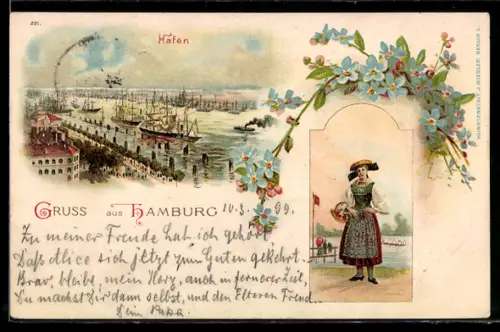 221.
Hafen
GRUSS aus HAMBURG 10.3.99.
Zu meiner Freude hab ich gehört
Daß Alice sich jetzt zum Guten gekehrt.
Brav, bleibe, mein Herz, auch in fernerer Zeit,
Du machst Dir dann selbst, und den Elteren Freud.
Dein Papa.